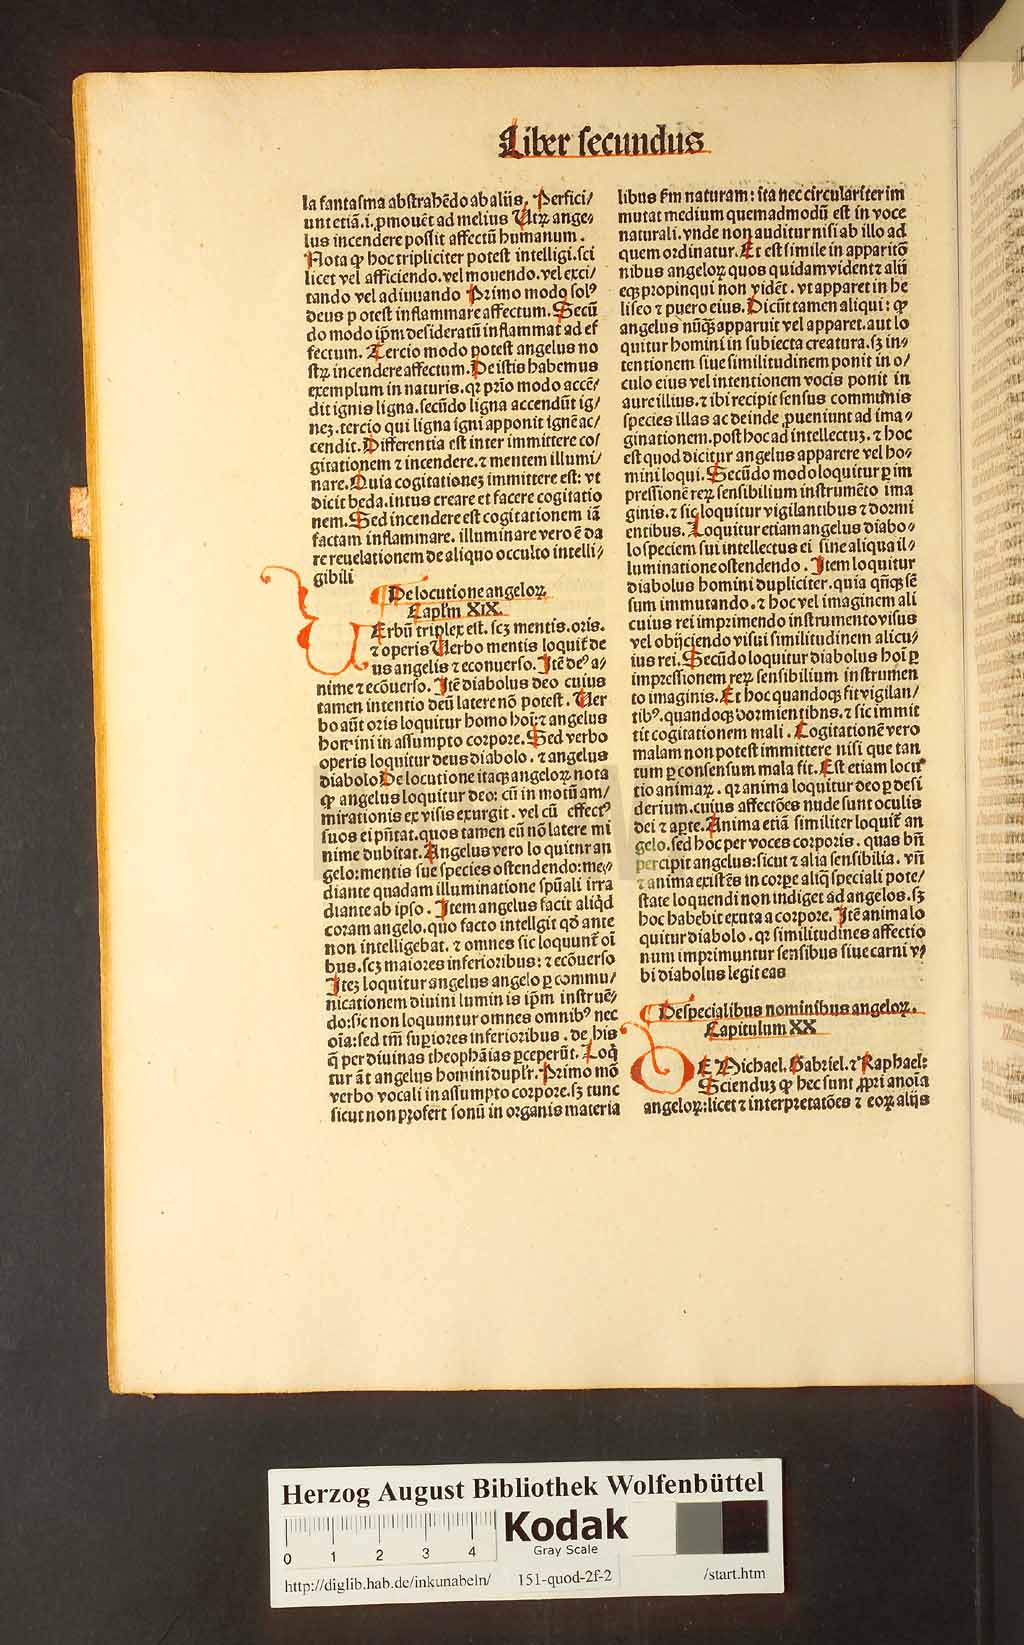 Liber secundus
la fantasma abstrahēdo ab aliis. Perfici/
unt etiā.i.ꝑmouēt ad melius Utꝝ ange⸗
lus incendere possit affectū humanum .
Nota ꝙ hoc tripliciter potest intelligi.sci
licet vel afficiendo.vel mouendo.vel exci/
tando vel adiuuando Primo modo solꝰ
deus potest inflammare affectum. Secū
do modo ip̄m desideratū inflammat ad ef
fectum. Tercio modo potest angelus no
stꝝ incendere affectum. De istis habemus
exemplum in naturis.qꝛ prīo modo accē/
dit ignis ligna.secūdo ligna accendūt ig/
nez.tercio qui ligna igni apponit ignē ac/
cendit. Differentia est inter immittere co/
gitationem ⁊ incendere.⁊ mentem illumi/
nare. Quia cogitationez immittere est: vt
dicit beda.intus creare et facere cogitatio
nem. Sed incendere est cogitationem iā
factam inflammare. illuminare vero ē da
re reuelationem de aliquo occulto intelli⸗
gibili
De locutione angeloꝝ
Caplm XIX.
UErbū triplex est. scꝫ mentis.oris.
⁊ operis Verbo mentis loquit᷑ de
us angelis ⁊ econuerso. Itē deꝰ a⸗
nime ⁊ ecōuerso. Itē diabolus deo cuius
tamen intentio deū latere nō potest. Ver
bo aūt oris loquitur homo hoī:⁊ angelus
homini in assumpto corpore. Sed verbo
operis loquitur deus diabolo. ⁊ angelus
diabolo De locutione itaqꝫ angeloꝝ nota
ꝙ angelus loquitur deo: cū in motū am/
mirationis ex visis exurgit. vel cū effectꝰ
suos ei p̄ntat.quos tamen eū nō latere mi
nime dubitat. Angelus vero lo quitnr an
gelo:mentis sue species ostendendo:me⸗
diante quadam illuminatione spūali irra
diante ab ipso . Item angelus facit aliqd
coram angelo.quo facto intellgit qd ante
non intelligebat. ⁊ omnes sic loquunt᷑ oī
bus.scꝫ maiores inferioribus: ⁊ ecōuerso
Itez loquitur angelus angelo ꝑ commu/
nicationem diuini luminis ip̄m instruē⸗
do:sic non loquuntur omnes omnibꝰ nec
oīa:sed tm̄ suꝑiores inferioribus . de his
q̄ per diuinas theophāias ꝑceperūt. Loq̄
tur āt angelus homini duplr̄. Primo mō
verbo vocali in assumpto corpore.sꝫ tunc
sicut non profert sonū in organis materia
libus ẜm naturam: ita nec circulariter im
mutat medium quemadmodū est in voce
naturali.vnde non auditur nisi ab illo ad
quem ordinatur. Et est simile in apparitō
nibus angeloꝝ quos quidam vident ⁊ alii
eqꝫ propinqui non vidēt . vt apparet in he
liseo ⁊ puero eius. Dicūt tamen aliqui: ꝙ
angelus nūq̄ꝫ apparuit vel apparet.aut lo
quitur homini in subiecta creatura.sꝫ in⸗
tentionem siue similitudinem ponit in o/
culo eius vel intentionem vocis ponit in
aure illius.⁊ ibi recipit sensus communis
species illas ac deinde ꝓueniunt ad ima⸗
ginationem.post hoc ad intellectuꝫ. ⁊ hoc
est quod dicitur angelus apparere vel ho⸗
mini loqui. Secūdo modo loquitur ꝑ im
pressionē reꝝ sensibilium instrumēto ima
ginis. ⁊ sic loquitur vigilantibus ⁊ dormi
entibus. Loquitur etiam angelus diabo⸗
lo speciem sui intellectus ei sine aliqua il⸗
luminatione ostendendo . Item loquitur
diabolus homini dupliciter. quia qn̄qꝫ sē
sum immutando. ⁊ hoc vel imaginem ali
cuius rei imprimendo instrumento visus
vel obijciendo visui similitudinem alicu/
ius rei. Secūdo loquitur diabolus hoī ꝑ
impressionem reꝝ sensibilium instrumen
to imaginis. Et hoc quandoqꝫ fit vigilan/
tibꝰ.quandoqꝫ dormientibns. ⁊ sic immit
tit cogitationem mali . Cogitationē vero
malam non potest immittere nisi que tan
tum ꝑ consensum mala fit. Est etiam locu
tio animaꝝ . qꝛ anima loquitur deo ꝑ desi
derium.cuius affectōes nude sunt oculis
dei ⁊ aꝑte. Anima etiā similiter loquit᷑ an
gelo.sed hoc per voces corporis . quas bn̄
percipit angelus:sicut ⁊ alia sensibilia . vn̄
⁊ anima existēs in corpe aliq̄ speciali pote/
state loquendi non indiget ad angelos.sꝫ
hoc habebit exuta a corpore. Itē anima lo
quitur diabolo . qꝛ similitudines affectio
num imprimuntur sensibus siue carni v⸗
bi diabolus legit eas
De specialibus nominibus angeloꝝ.
Capitulum XX
DE Michael. Gabriel. ⁊ Raphael:
Scienduꝫ ꝙ hec sunt ꝓpri anoīa
angeloꝝ:licet ⁊ interpretatōes ⁊ eoꝝ alijs
Herzog August Bibliothek Wolfenbüttel
Kodak
Gray Scale
0 1 2 3 4
http://diglib.hab.de/inkunabeln/ 151-quod-2f-2 /start.htm